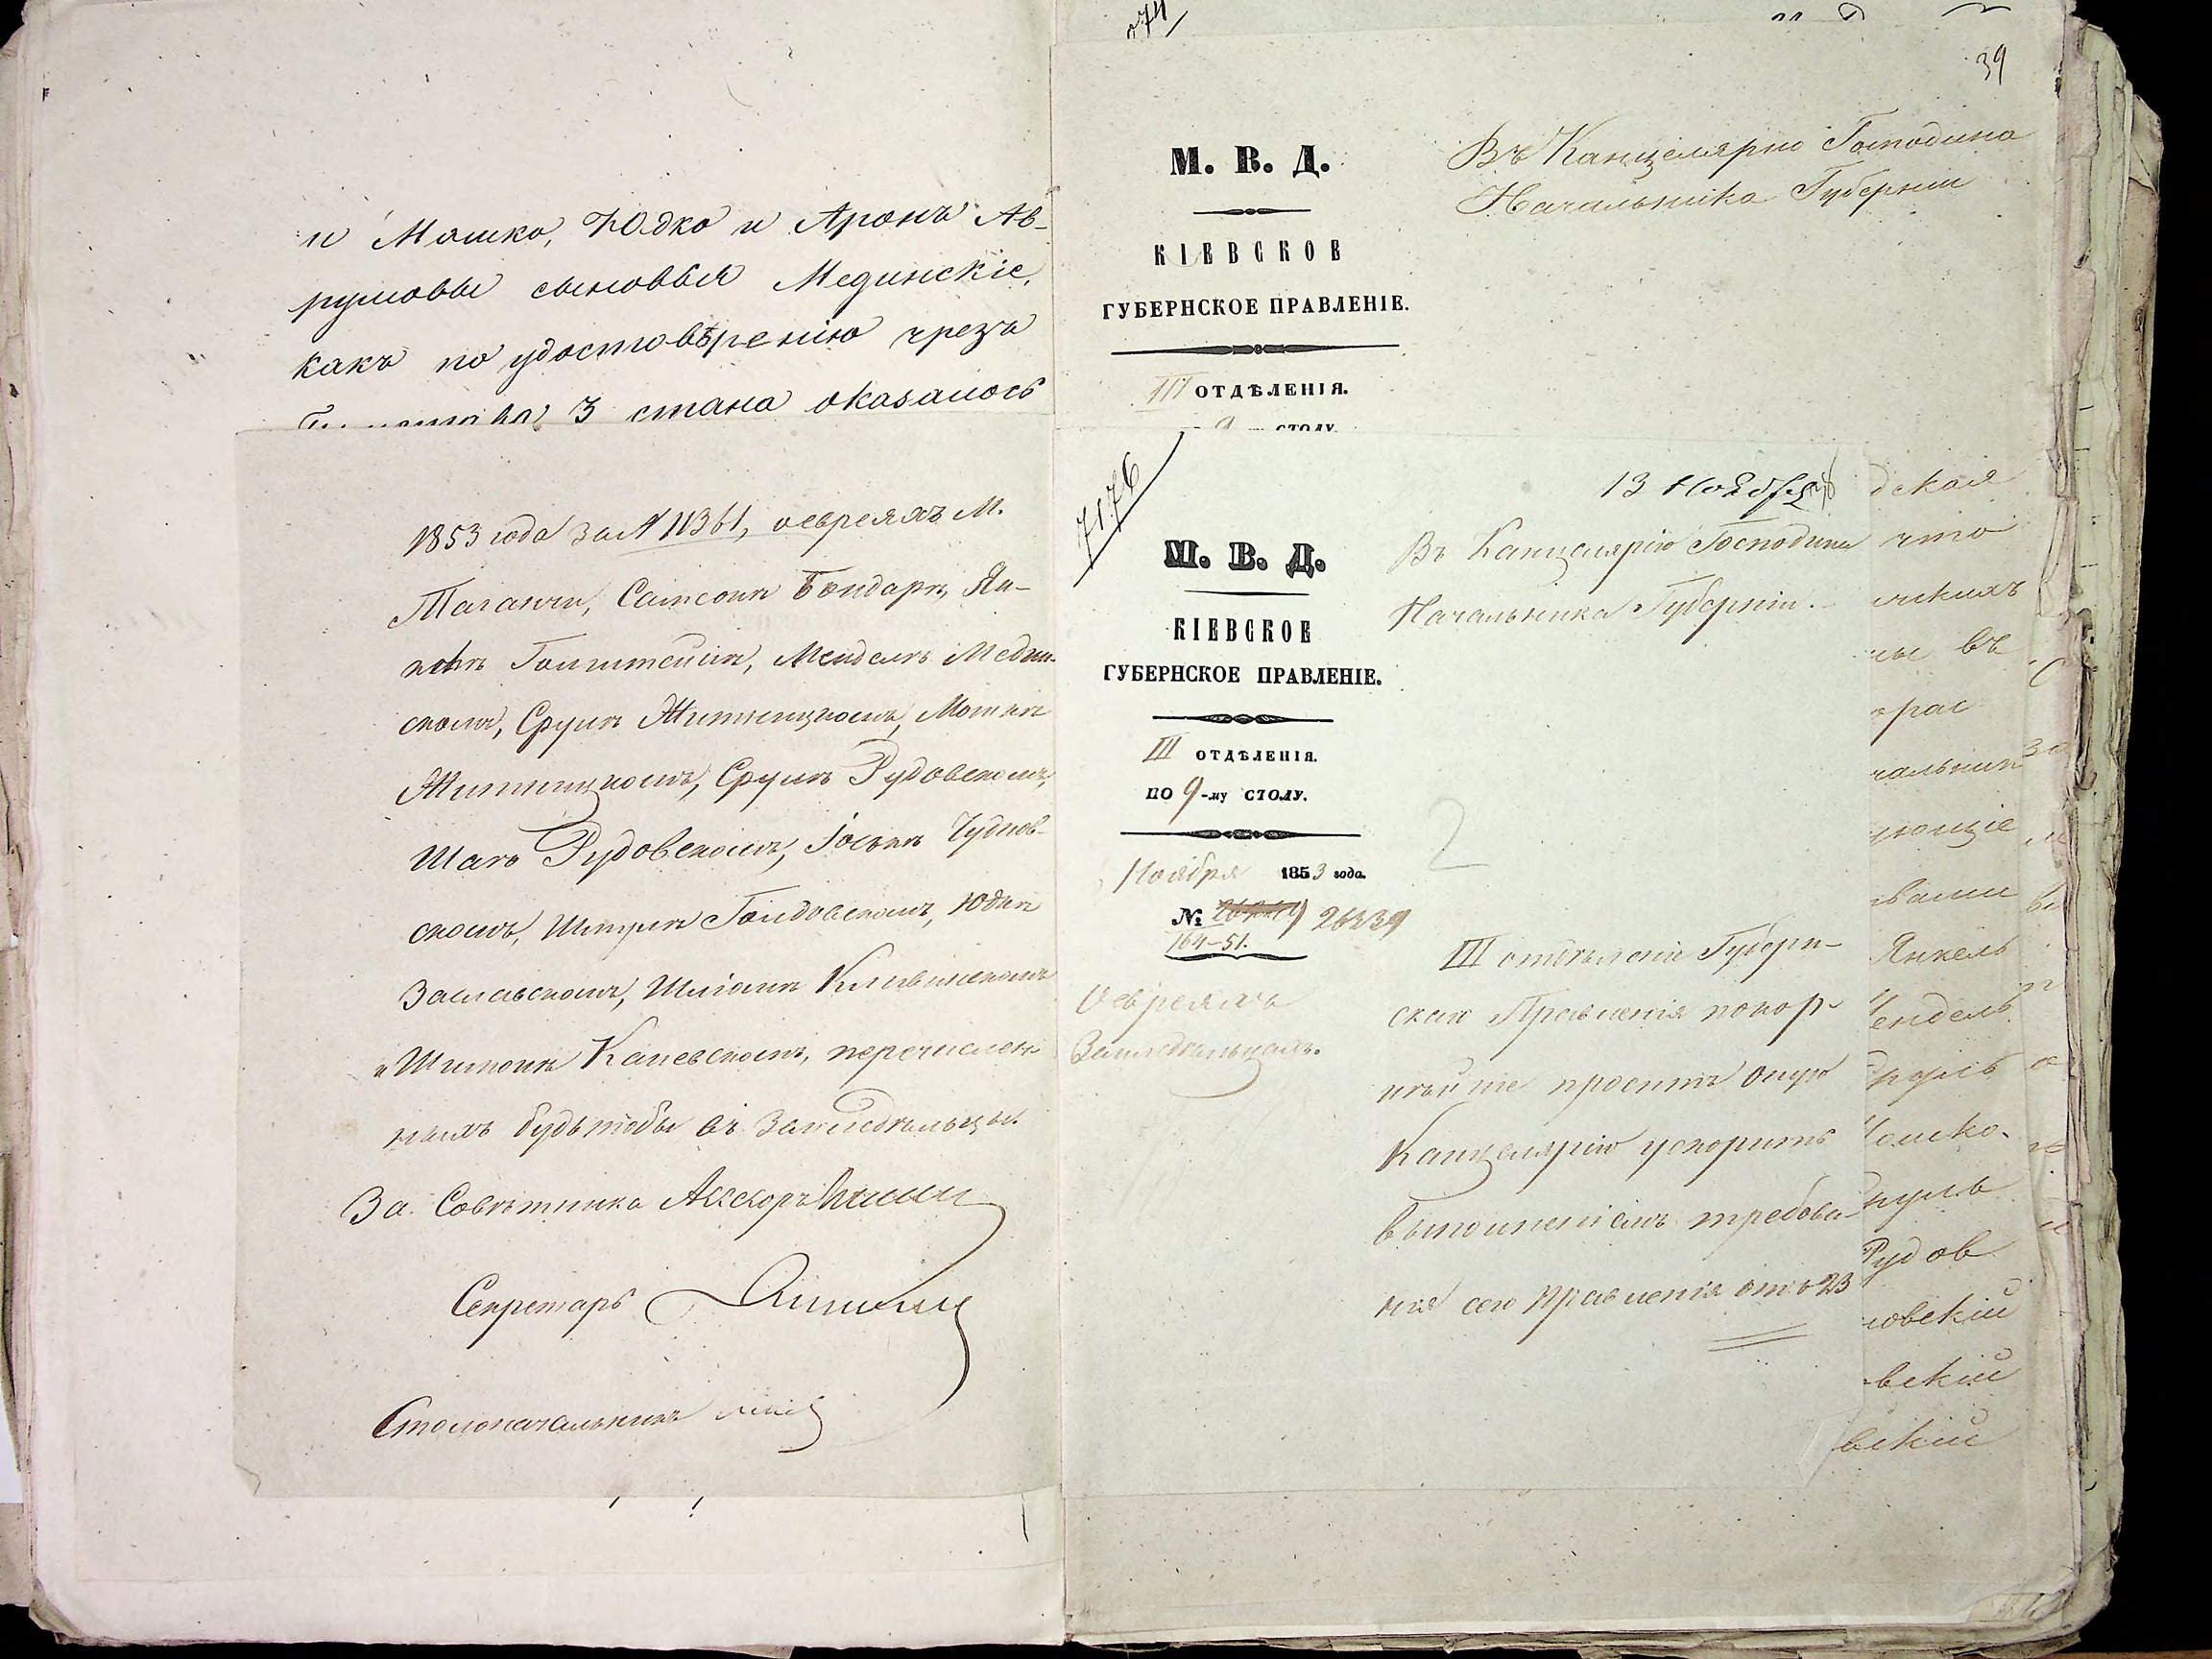 и Мошко, Юдко и Аронъ Ав-
румовы сыновья Мединскіе,
какъ по удостовѣренію чрезъ
3 стана оказалось
1853 года за № 11361, о евреяхъ М.
Таганчи, Самсонѣ Бондарѣ, Ян-
келѣ Голштейнѣ, Менделѣ Медин-
скомъ, Срулѣ Житницкомъ, Мошкѣ
Житницкомъ, Срулѣ Рудовскомъ,
Шаѣ Рудовскомъ, Іоськѣ Чуднов-
скомъ, Шмулѣ Голдовскомъ, Юдкѣ
Заславскомъ, Шліомѣ
и Шимонѣ Каневскомъ, перечислен-
ныхъ будьтобы въ Земледѣльцы.
За Совѣтника Ассесоръ
Секретарь
Столоначальникъ
274
39
М. В. Д.
КІЕВСКОЕ
ГУБЕРНСКОЕ ПРАВЛЕНІЕ.
III ОТДѢЛЕНІЯ.
9 СТОЛУ.
Въ Канцелярію Господина
Начальника Губерніи
7176
13 Ноября
М. В. Д.
КІЕВСКОЕ
ГУБЕРНСКОЕ ПРАВЛЕНІЕ.
III ОТДѢЛЕНІЯ.
ПО 9-му СТОЛУ.
Ноября 1853 года.
№ 26239
164-51.
О евреяхъ
Земледѣльцахъ.
Въ Канцелярію Господина
Начальника Губерніи.
2
III отдѣленіе Губерн-
скаго Правленія покор-
нѣйше проситъ оную
Канцелярію ускорить
выполненіемъ требова-
нія сего Правленія отъ 23
дская
что
ческихъ
ные въ
орас
чальник
ующіе
вами
Янкель
Мендель
Сруль
Мошко
Сруль
Рудов
новскій
вскій
вскій